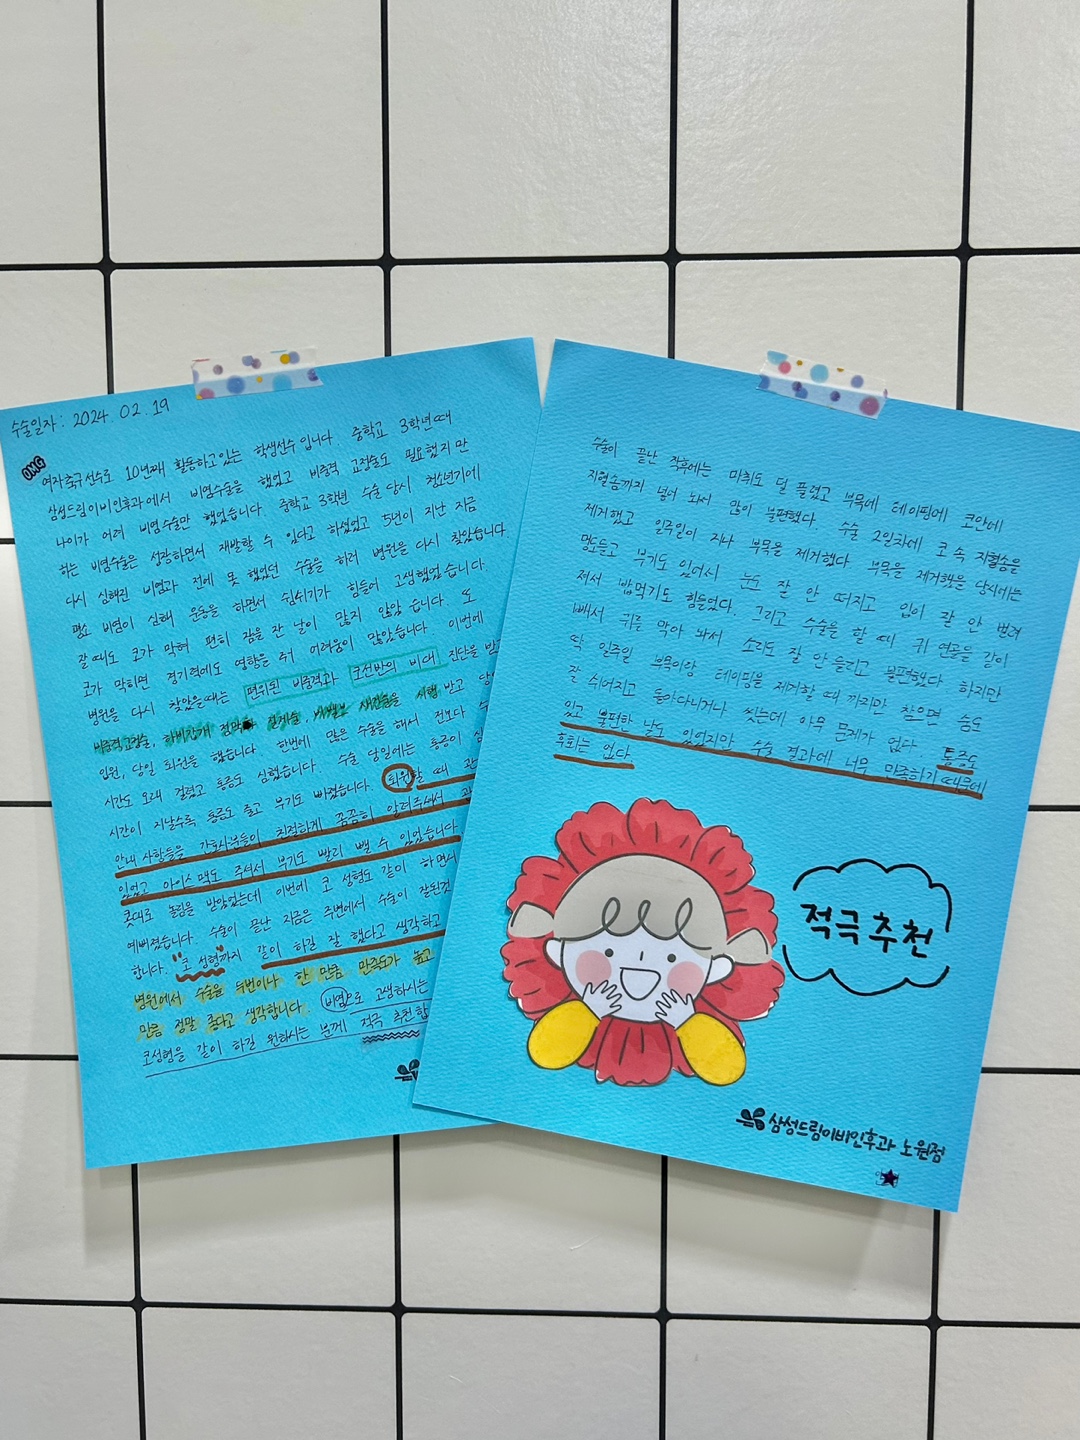 수술일자 : 2024. 02. 19
OMG
여자축구선수로 10년째 활동하고있는 학생선수 입니다. 중학교 3학년때
삼성드림이비인후과에서 비염수술을 했었고 비중격 교정술도 필요했지만
나이가 어려 비염수술만 했었습니다. 중학교 3학년 수술 당시 청소년기에
하는 비염수술은 성장하면서 재발할 수 있다고 하셨었고 5년이 지난 지금
다시 심해진 비염과 전에 못 했었던 수술을 하러 병원을 다시 찾았습니다.
평소 비염이 심해 운동을 하면서 숨쉬기가 힘들어 고생했었습니다.
잘 때도 코가 막혀 편히 잠을 잔 날이 많지 않았습니다. 또
코가 막히면 경기력에도 영향을 주어 어려움이 많았습니다. 이번에
병원을 다시 찾았을때는 편위된 비중격과 코선반의 비대 진단을 받
비중격교정술, 하비갑개 점막하 절제술, 을 시행 받고 당
입원, 당일 퇴원을 했습니다. 한번에 많은 수술을 해서 전보다
시간도 오래 걸렸고 통증도 심했습니다. 수술 당일에는 통증이 심
시간이 지날수록 통증도 줄고 부기도 빠졌습니다. 퇴원할 때
안내 사항들을 간호사분들이 친절하게 꼼꼼히 알려주셔서
있었고 아이스팩도 주셔서 부기도 빨리 뺄 수 있었습니다
콧대로 놀림을 받았었는데 이번에 코 성형도 같이 하면서
예뻐졌습니다. 수술이 끝난 지금은 주변에서 수술이 잘된것
합니다. "코 성형"까지 같이 하길 잘 했다고 생각하고
병원에서 수술을 두번이나 한 만큼 만족도가 높고
만큼 정말 좋다고 생각합니다. 비염으로 고생하시는
코성형을 같이 하길 원하시는 분께 적극 추천합
수술이 끝난 직후에는 마취도 덜 풀렸고 부목에 테이핑에 코안에
지혈솜까지 넣어 놔서 많이 불편했다. 수술 2일차에 코 속 지혈솜을
제거했고 일주일이 지나 부목을 제거했다. 부목을 제거했을 당시에는
멍도들고 부기도 있어서 눈도 잘 안 떠지고 입이 잘 안 벌려
져서 밥먹기도 힘들었다. 그리고 수술을 할 때 귀 연골을 같이
빼서 귀를 막아 놔서 소리도 잘 안 들리고 불편했다. 하지만
딱 일주일 부목이랑 테이핑을 제거할 때 까지만 참으면 숨도
잘 쉬어지고 돌아다니거나 씻는데 아무 문제가 없다. 통증도
있고 불편한 날도 있었지만 수술 결과에 너무 만족하기 때문에
후회는 없다.
적극 추천
삼성드림이비인후과 노원점